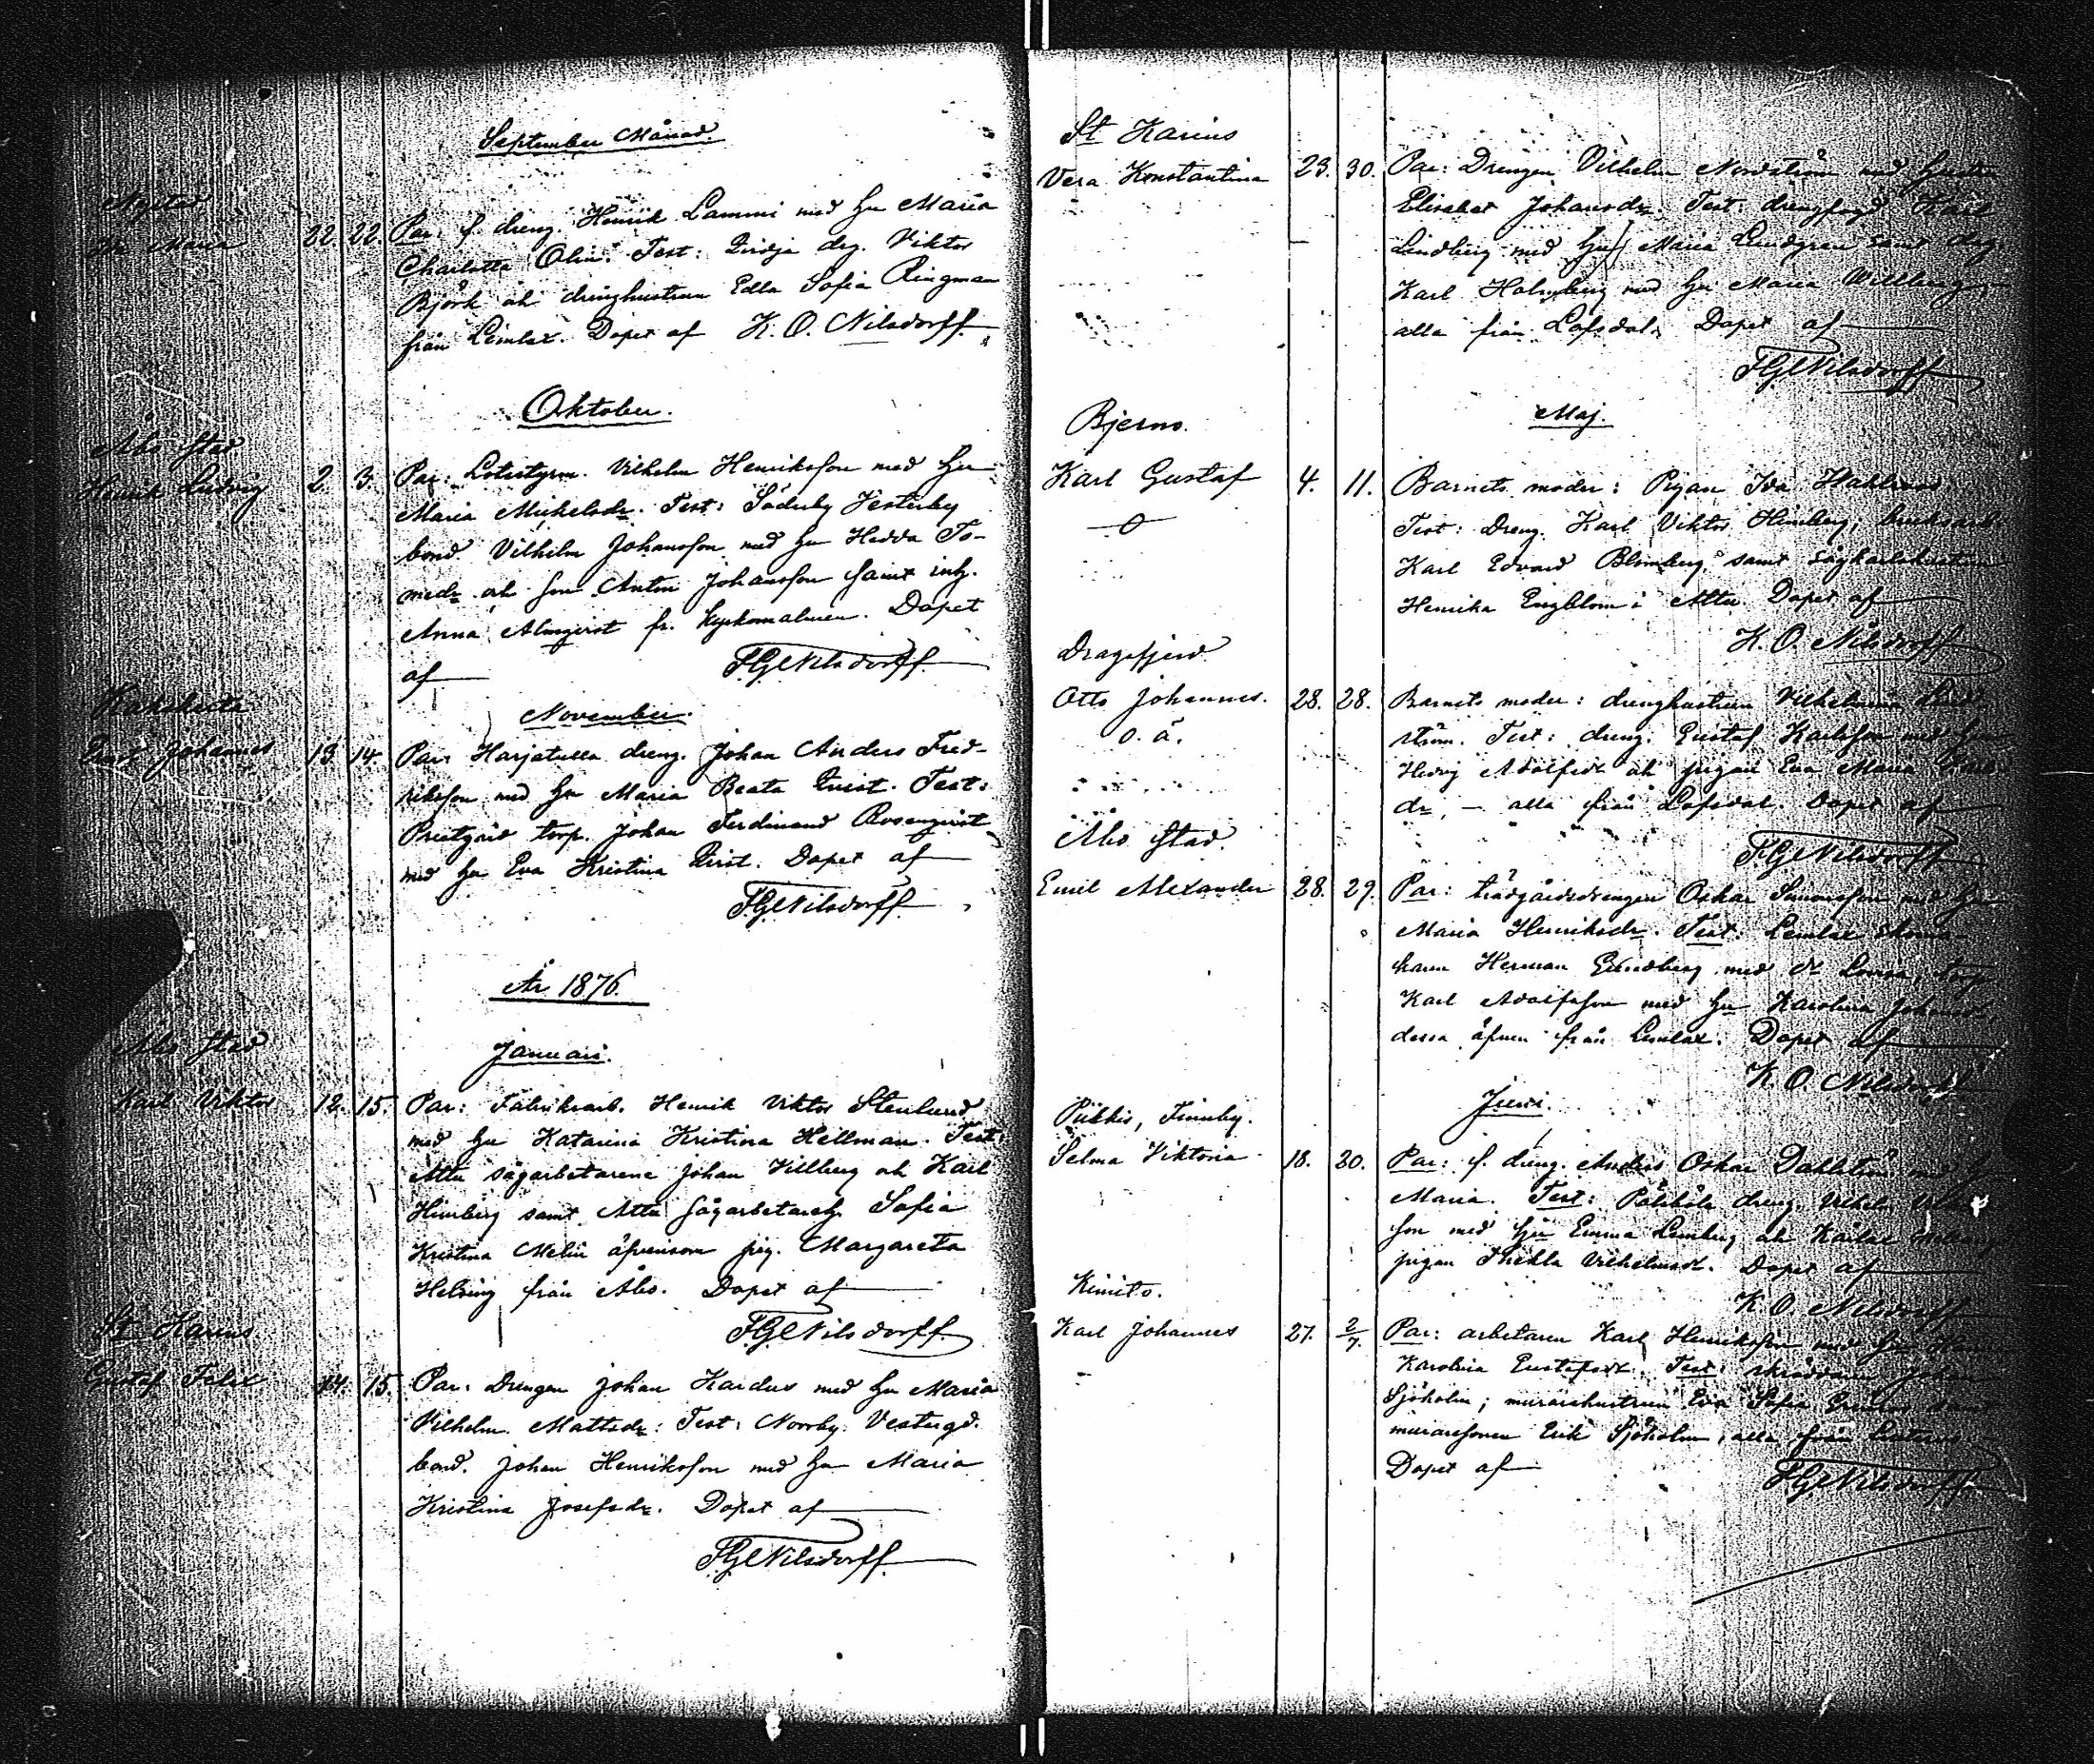 September Månad.
Nystad
Maria 22. 22. Par: f. dreng. Henrik Lammi med hu Maria
Charlotta Olin. Test: drg. Viktor
Björk och drenghustrun Edla Sofia Ringman
från Lemlax. Döpet af K. O. Nilsdorff.
Oktober.
Åbo stad
Henrik Ludvig 2. 3. Par: Lotsstyrm. Vilhelm Henriksson med hu
Maria Mickelsdr. Test: Söderby Vesterby
bond. Vilhelm Johansson med hu Hedda To-
medr och son Anton Johansson samt inh.
Anna Almqvist fr. Kyrkomalmen. Döpet
af FGNilsdorff.
November.
Johannes 13. 14. Par: Harjatulla dreng. Johan Anders Fred-
riksson med hu Maria Beata Qvist. Test:
Prestgård torp. Johan Ferdinand Rosenqvist
med hu Eva Kristina Qvist. Döpet af
FGNilsdorff.
År 1876.
Januari.
Åbo stad
Karl Viktor 12. 15. Par: Fabriksarb. Henrik Viktor Stenlund
med hu Katarina Kristina Hellman. Test:
Attu sågarbetarene Johan Villberg och Karl
Himberg samt Attu sågarbetareh. Sofia
Kristina Melin äfvensom pig. Margareta
Helsing från Åbo. Döpet af
FGNilsdorff.
St Karins
Gustaf Felix 14. 15. Par: Drengen Johan Kardus med hu Maria
Vilhelm. Mattsdr: Test: Norrby Vestergd.
bond. Johan Henriksson med hu Maria
Kristina Josefsdr. Döpet af
FGNilsdorff.
St Karins
Vera Konstantina 23. 30. Par: Drengen Vilhelm Nordström med hustru
Elisabet Johansdr. Test: drengfogd Karl
Lindberg med hu Maria Lindgren samt drg.
Karl Holmberg med hu Maria Willberg
alla från Lofsdal. Döpet af
FGNilsdorff
Maj.
Bjerno.
Karl Gustaf 4. 11. Barnets moder: Pigan Ida
o Test: Dreng. Karl Viktor Himberg, bruksarb.
Karl Edvard Blomberg samt sågkarlshustrun
Henrika Engblom i Attu. Döpet af
K. O. Nilsdorff
Dragsfjerd.
Otto Johannes. 28. 28. Barnets moder: drenghustrun Vilhelmina
o. ä. ström. Test: dreng. Gustaf Karlsson med hu
Hedvig Adolfsdr och pigan Eva Maria
dr, – alla från Lofsdal. Döpet af
FGNilsdorff
Åbo stad.
Emil Alexander 28. 29. Par: trädgårdsdrengen Oskar Simonsson med hu
Maria Henriksdr. Test: Lemlax
Herman med dr Lovisa,
Karl Adolfsson med hu Karolina
dessa äfven från Lemlax. Döpet af
K. O. Nilsdorff
Juni.
Piikkis, Tuunby.
Selma Viktoria 18. 20. Par: f. dreng. Anders Oskar Dahlström
Maria. Test: dreng. Vilhelm
son med hu Emma Lemberg och
pigan Thekla Vilhelmsdr. Döpet af
K. O. Nilsdorff
Kimito.
Karl Johannes 27. 2/7. Par: arbetaren Karl Henriksson med hu
Karolina Gustafsdr. Test: skräddaren Johan
Sjöholm; murarehustrun Eva Sofia
muraresonen Erik Sjöholm, alla från
Döpet af FGNilsdorff